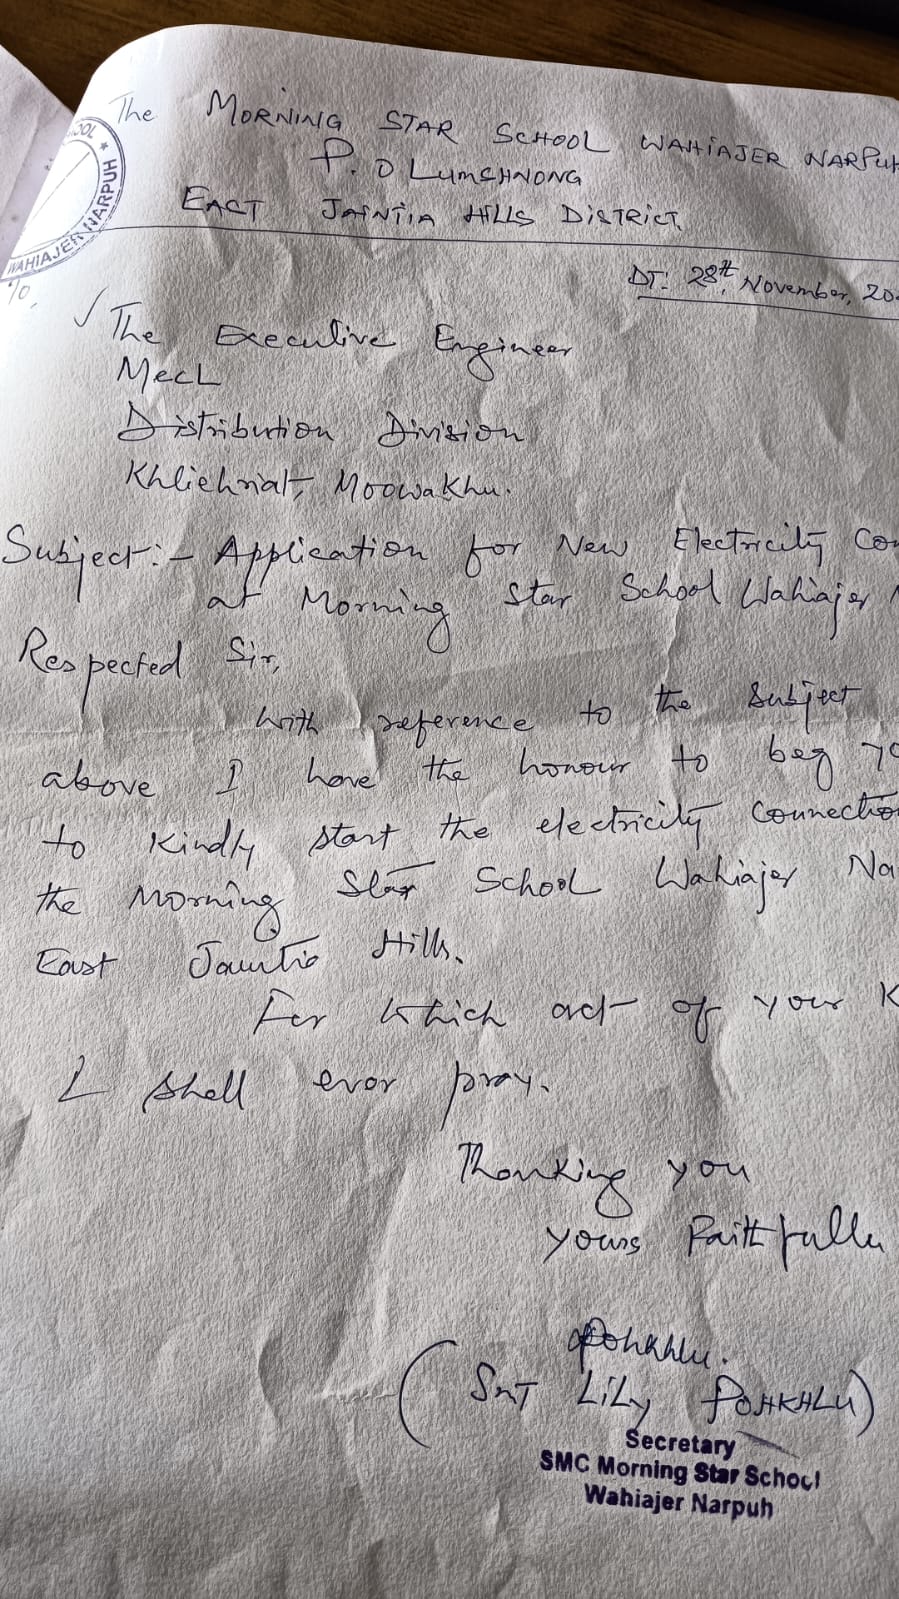 The MORNING STAR SCHOOL WAHIAJER NARPUH
P. O LUMSHNONG
EAST JAINTIA HILLS DISTRICT
WAHIAJER NARPUH
DT: 28th November, 20
The Executive Engineer
MecL
Distribution Division
Khliehriat, Moowakhu.
Subject:- Application for New Electricity Con
at Morning Star School Wahiajer
Respected Sir,
With reference to the subject
above I have the honour to beg yo
to kindly start the electricity connectio
the Morning Star School Wahiajer Na
East Jaintia Hills.
For which act of your K
I shall ever pray.
Thanking you
yours Faithfully
Pohkhlu.
(SMT LiLy POHKHLU)
Secretary
SMC Morning Star School
Wahiajer Narpuh